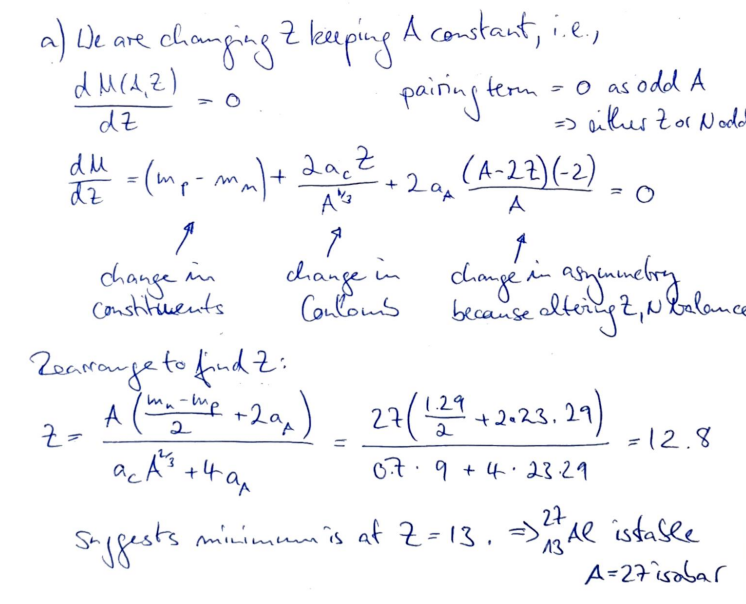 a) We are changing Z keeping A constant, i.e.,
dM(A,Z)/dZ = 0
pairing term = 0 as odd A
⇒ either Z or N odd
dM/dZ = (m_p - m_n) + 2a_c Z/A^{1/3} + 2a_A (A-2Z)(-2)/A = 0
change in constituents
change in Coulomb
change in asymmetry because altering Z, N balance
Rearrange to find Z:
Z = A((m_n - m_p)/2 + 2a_A)/(a_c A^{2/3} + 4a_A) = 27(1.29/2 + 2·23.29)/(0.7·9 + 4·23.29) = 12.8
Suggests minimum is at Z = 13. ⇒ ^{27}_{13}Al is stable
A=27 isobar